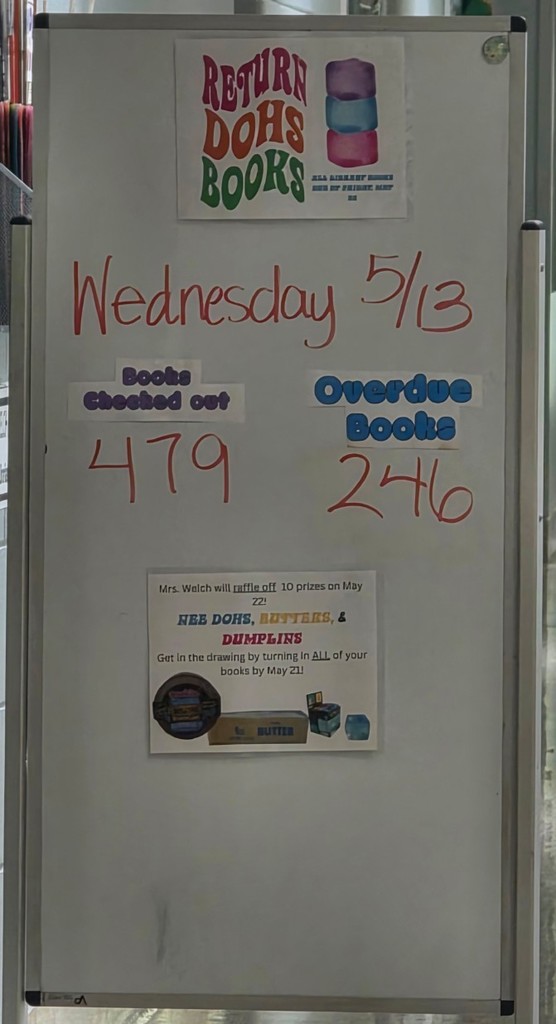 RETURN
DOHS
BOOKS
ALL LIBRARY BOOKS
DUE BY FRIDAY, MAY
Wednesday 5/13
Books
Checked out
Overdue
Books
479
246
Mrs. Welch will raffle off 10 prizes on May
22!
NEE DOHS, BUTTERS, &
DUMPLINS
Get in the drawing by turning in ALL of your
books by May 21!
BUTTER